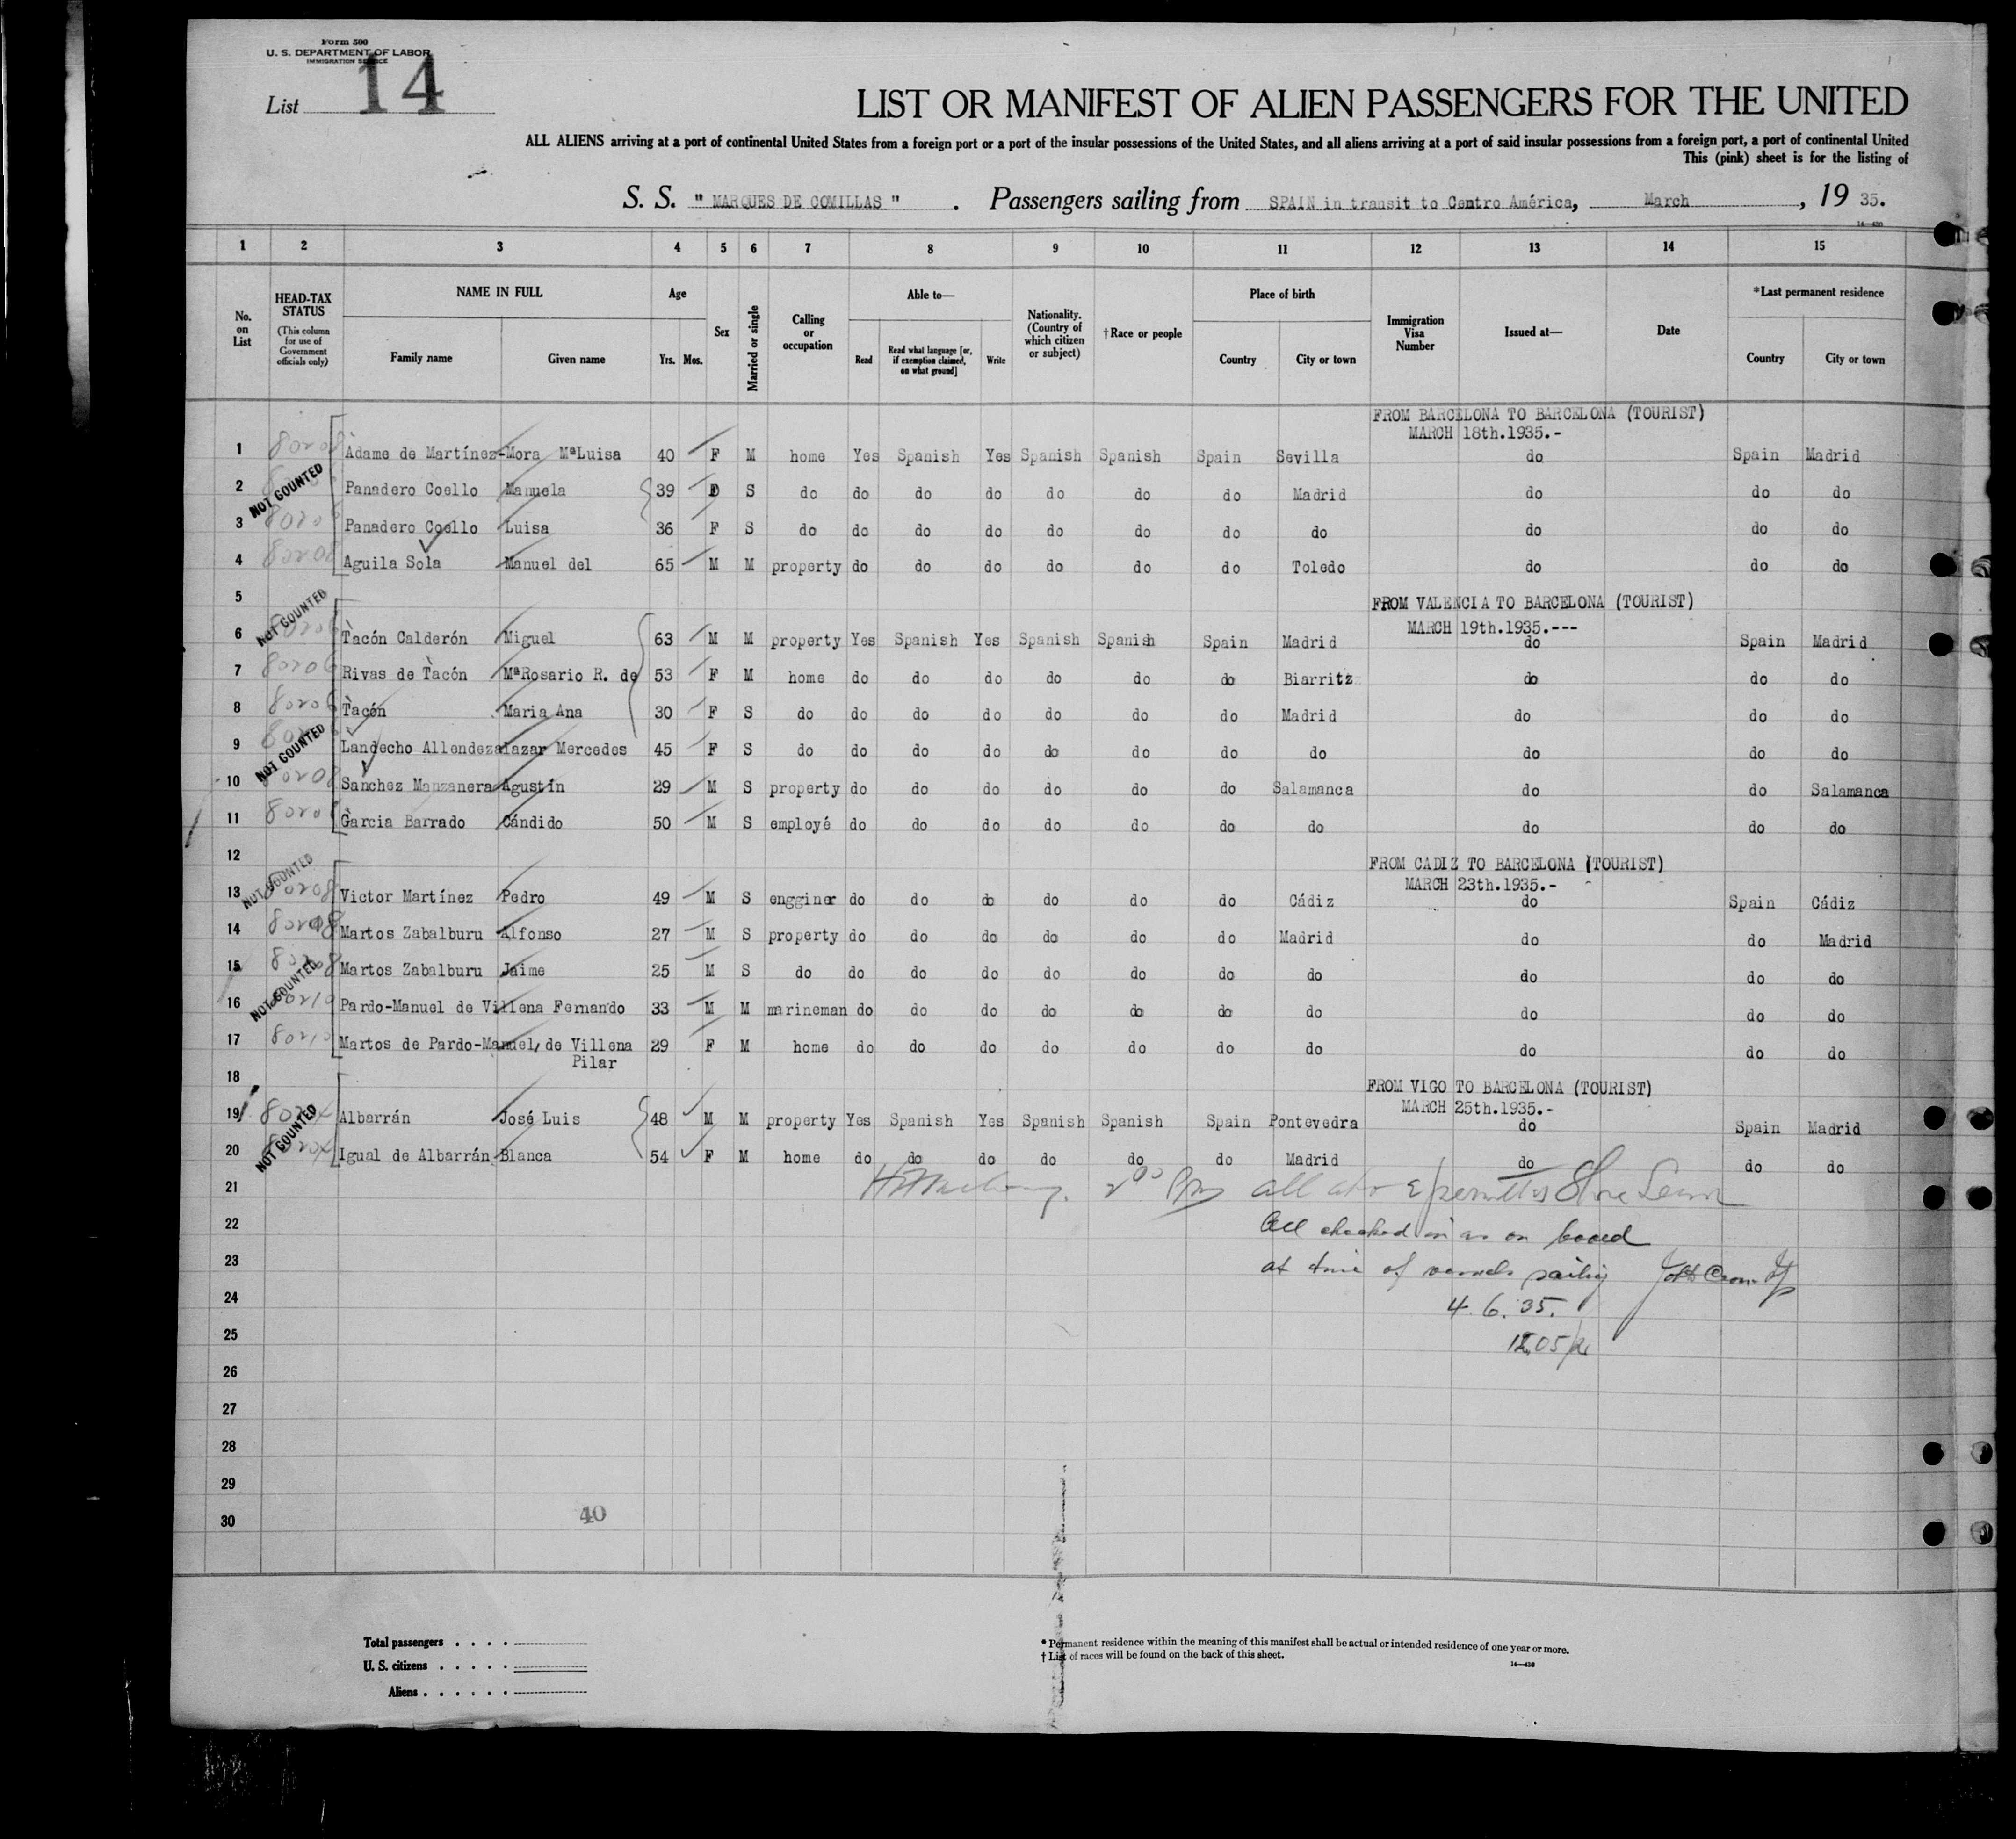 Form 500
U. S. DEPARTMENT OF LABOR
IMMIGRATION SERVICE
List 14
LIST OR MANIFEST OF ALIEN PASSENGERS FOR THE UNITED
ALL ALIENS arriving at a port of continental United States from a foreign port or a port of the insular possessions of the United States, and all aliens arriving at a port of said insular possessions from a foreign port, a port of continental United
This (pink) sheet is for the listing of
S. S. " MARQUES DE COMILLAS " . Passengers sailing from SPAIN in transit to Centro América, March , 19 35.
14—430
1 2 3 4 5 6 7 8 9 10 11 12 13 14 15
No. on List HEAD-TAX STATUS (This column for use of Government officials only) NAME IN FULL Family name Given name Age Yrs. Mos. Sex Married or single Calling or occupation Able to— Read Read what language [or, if exemption claimed, on what ground] Write Nationality. (Country of which citizen or subject) †Race or people Place of birth Country City or town Immigration Visa Number Issued at— Date *Last permanent residence Country City or town
FROM BARCELONA TO BARCELONA (TOURIST)
MARCH 18th.1935.-
1 80208 Àdame de Martínez-Mora MªLuisa 40 F M home Yes Spanish Yes Spanish Spanish Spain Sevilla do Spain Madrid
2 NOT COUNTED Panadero Coello Manuela 39 S do do do do do do do Madrid do do do
3 Panadero Coello Luisa 36 F S do do do do do do do do do do do
4 80208 Aguila Sola Manuel del 65 M M property do do do do do do Toledo do do do
5 FROM VALENCIA TO BARCELONA (TOURIST)
NOT COUNTED MARCH 19th.1935.---
6 Tàcón Calderón Miguel 63 M M property Yes Spanish Yes Spanish Spanish Spain Madrid do Spain Madrid
7 80206 Rivas de Tàcón MªRosario R. de 53 F M home do do do do do do Biarritz do do do
8 80206 Tàcón Maria Ana 30 F S do do do do do do do Madrid do do do
9 NOT COUNTED Landecho Allendezalazar Mercedes 45 F S do do do do do do do do do do do
10 Sànchez Manzanera Agustín 29 M S property do do do do do do Salamanca do do Salamanca
11 Gàrcia Barrado Cándido 50 M S employé do do do do do do do do do do
12 FROM CADIZ TO BARCELONA (TOURIST)
NOT COUNTED MARCH 23th.1935.-
13 80208 Victor Martínez Pedro 49 M S engginer do do do do do do Cádiz do Spain Cádiz
14 80208 Martos Zabalburu Alfonso 27 M S property do do do do do do Madrid do do Madrid
15 80208 Martos Zabalburu Jaime 25 M S do do do do do do do do do do do
16 NOT COUNTED 80210 Pardo-Manuel de Villena Fernando 33 M M marineman do do do do do do do do do do
17 80210 Martos de Pardo-Manuel, de Villena 29 F M home do do do do do do do do do do
Pilar
18 FROM VIGO TO BARCELONA (TOURIST)
MARCH 25th.1935.-
19 Albarrán José Luis 48 M M property Yes Spanish Yes Spanish Spanish Spain Pontevedra do Spain Madrid
20 NOT COUNTED Igual de Albarrán Blanca 54 F M home do do do do do do Madrid do do do
21 all permitted Shore Leave
22 All checked in as on board
23 at time of vessels sailing
24 4. 6. 35.
25
26
27
28
29
30
40
Total passengers . . . .
U. S. citizens . . . . .
Aliens . . . . . .
* Permanent residence within the meaning of this manifest shall be actual or intended residence of one year or more.
† List of races will be found on the back of this sheet.
14—430